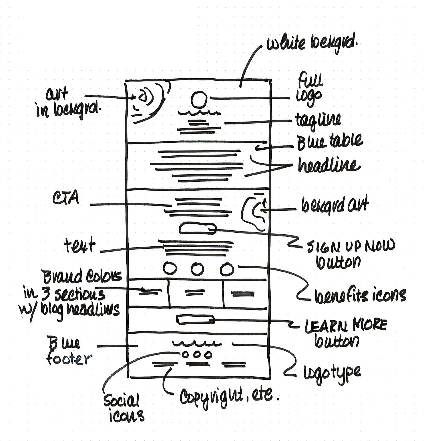 white bckgrd.
art
in bckgrd.
Full
logo
tagline
Blue table
headline
CTA
bckgrd art
SIGN UP NOW
button
text
Brand Colors
in 3 sections
w/ blog headlines
benefits icons
LEARN MORE
button
Blue
footer
logotype
Social
icons
Copyright, etc.